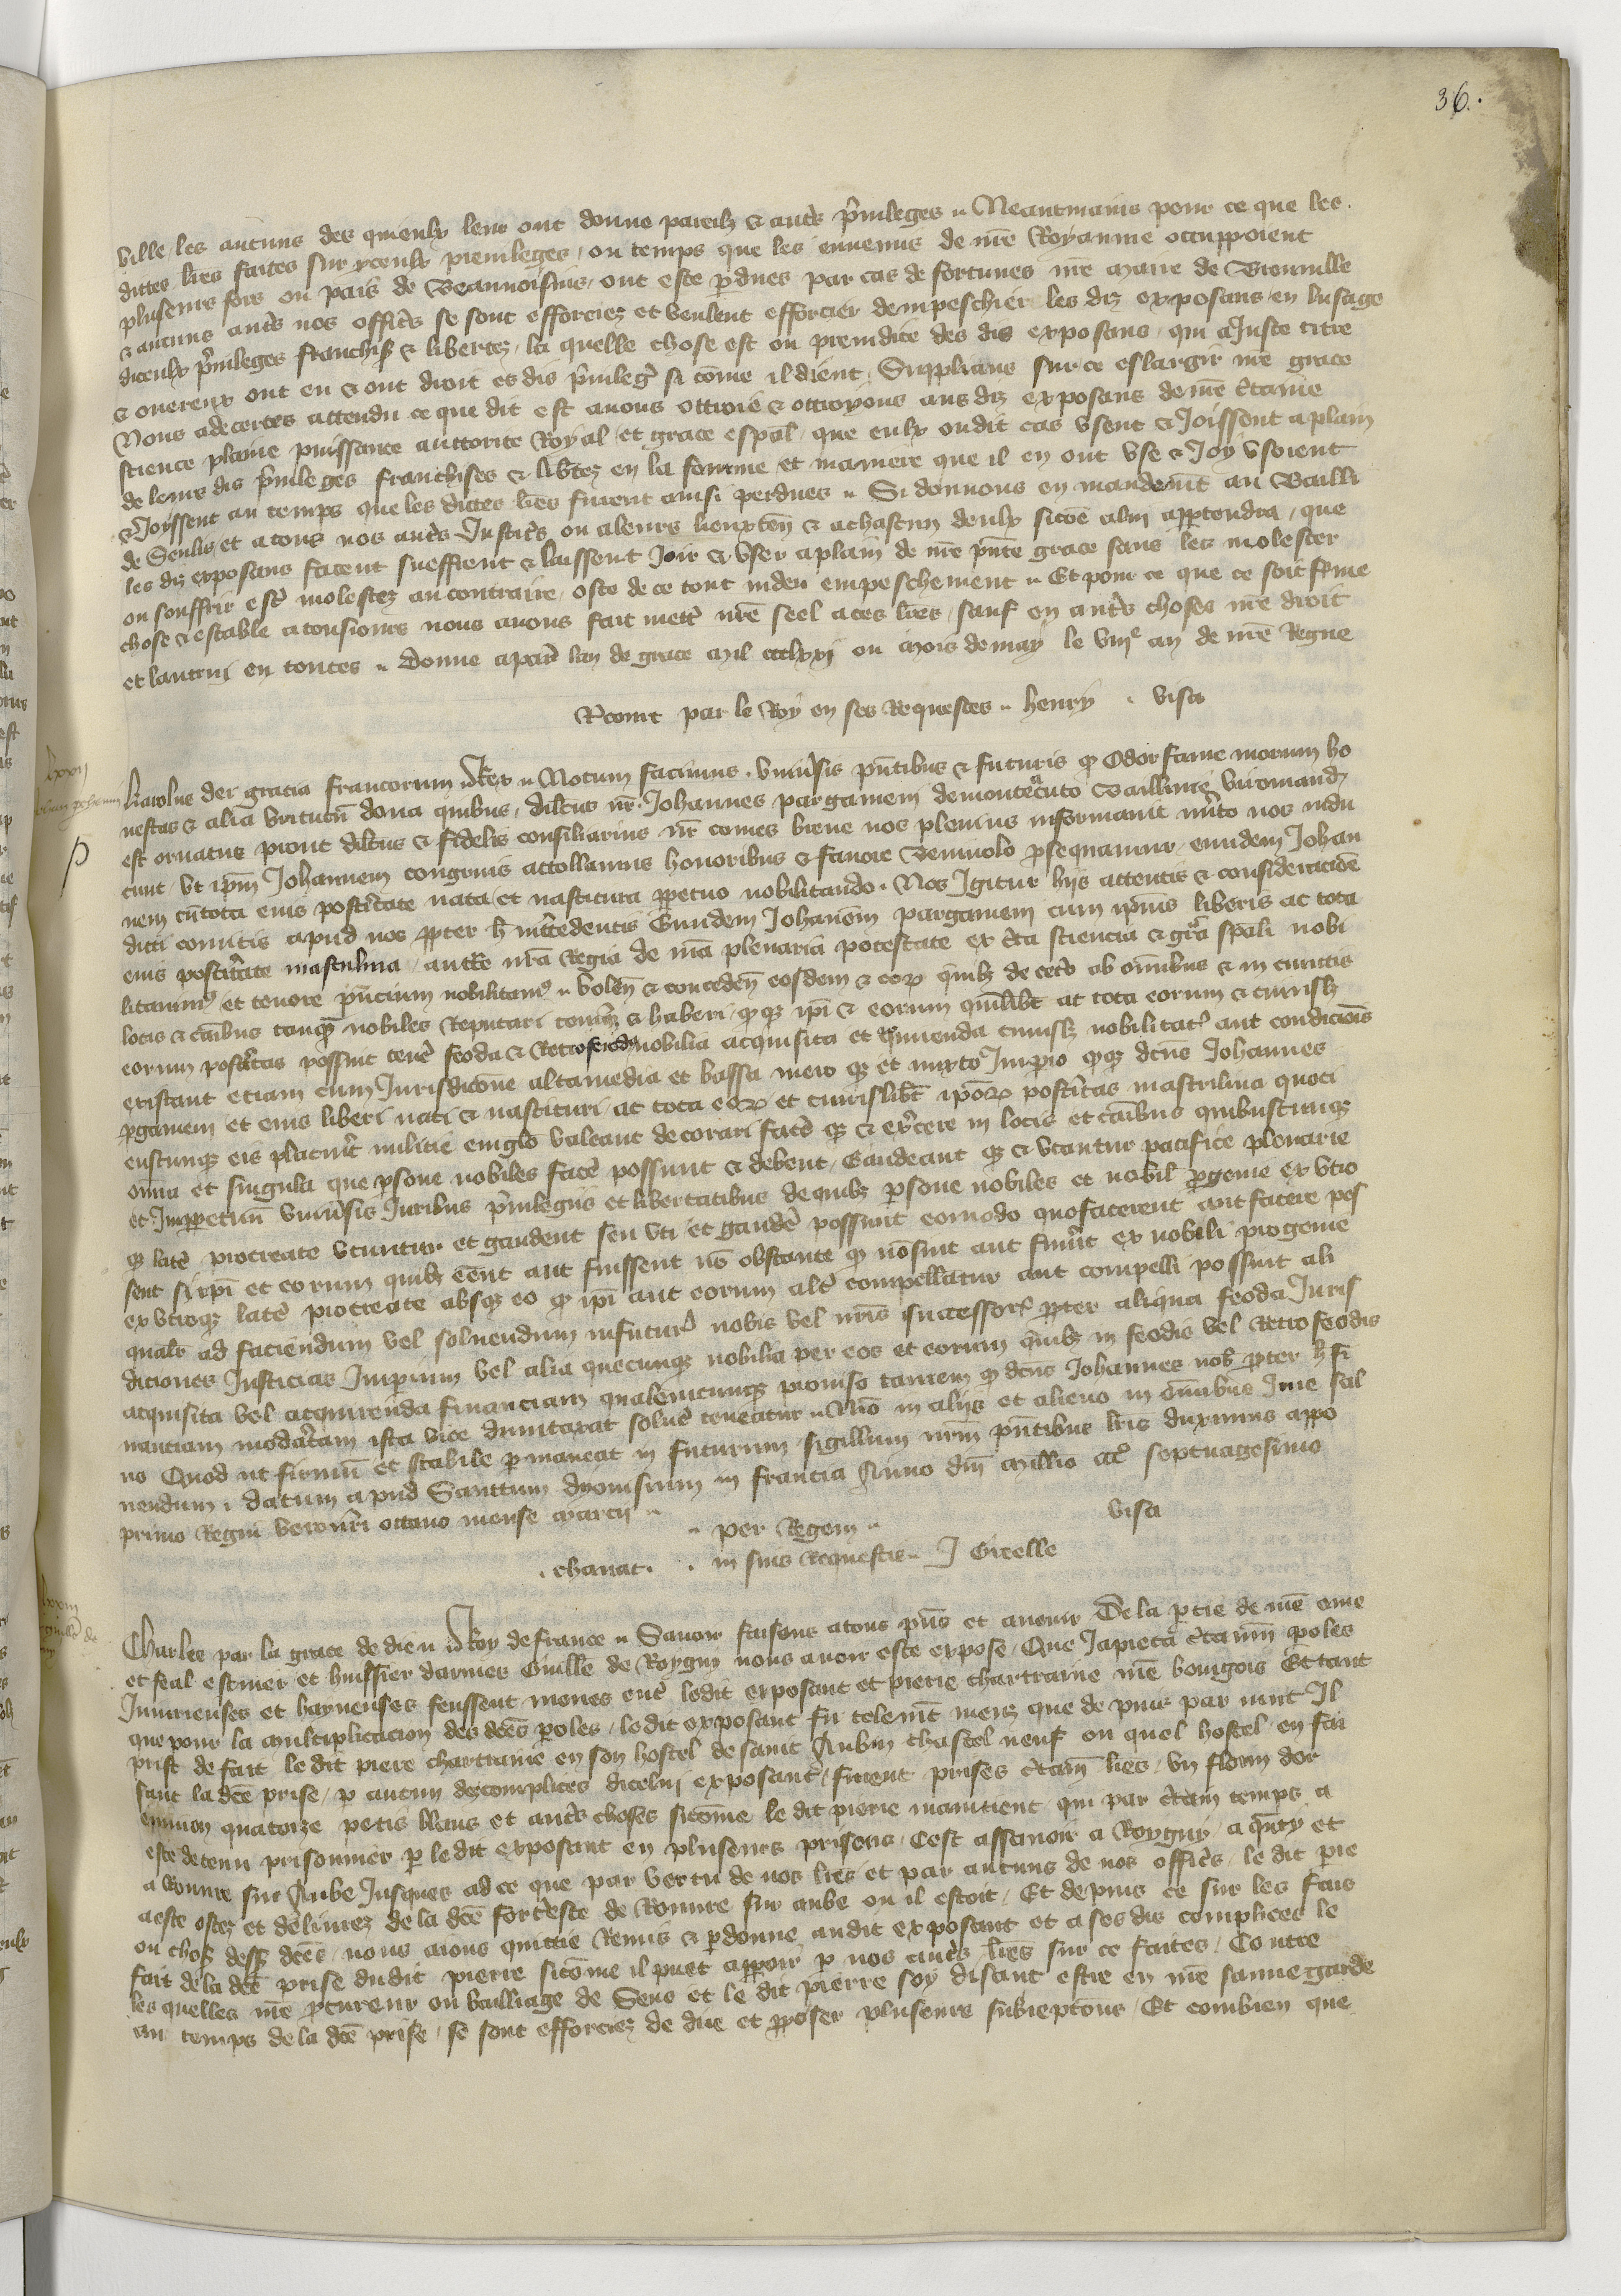 36.
ville les aucuns des quieulx leur ont donne pareilz & autrs pruileges .. Neantmains pour ce que les
dictes lres faites sur yceulx preuileges, ou temps que les ennemis de nre Royaume occuppoient
pluseurs fors ou pais de Beauuoisins, ont este pdues par cas de fortunes nre Maire de
& aucuns autrs nos offic's se sont efforciez et veulent efforcier dempeschier les diz exposans en lusage
diceulx pruileges franchis & libertez, la quelle chose est ou preiudice des dis exposans, qui a Juste titre
& onereux ont eu & ont droit es dis pruileg' si come il dient, Supplians sur ce eslargir nre grace
Nous adecertes attendu ce que dit est auons ottroie & ottroyons aus diz exposans de nre ctaine
science plaine puissance auttorite Royal, et grace espal, que eulx oudit cas vsent & Joissent a plain
de leurs dis pruileges franchises & libtez en la fourme et maniere que il en ont vse & Joy vsoient
& Joyssent au temps que les dictes lres furent ainsi perdues .. Si donnons en mandemt au Bailli
de Senlis et a tous nos autrs Justic's ou a leurs lieuxten & a chascun deulx sicoe a lui appartendra, que
les diz exposans facent sueffrent & laissent Joir & vser a plain de nre pnte grace sans les molester
ou souffrir estr molestez au contraire, oste de ce tout indeu empeschement .. Et pour ce que ce soit ferme
chose & estable a tousiours nous auons fait mettr nre seel a ces lres, sauf en autrs choses nre droit
et lautruj en toutes .. Donne a par lan de grace Mil ccclxxj ou Mois de may le viije an de nre Regne
par le Roy en ses Requestes .. henry . visa
Karolus dei gracia francorum Rex .. Notum facimus. vniusis pntibus & futuris q Odor fame morum ho
nestas & alia virtutu dona quibus, diltus nr. Johannes pargameni de monte acuto Baillinie viromand
est ornatus prout diltus & fidelis consiliarius nr comes brene nos plenius informauit mito nos indu
cunt, vt ipm Johannem congruis attollamus honoribus & fauore beniuolo psequamur, eundem Johan
nem cu tota eius postitate nata et nascitura ppetuo nobilitando. Nos Igitur hijs attentis & consideracioe
dicti comitis apud nos ppter h intcedentis Eundem Johanem pargameni cum ipius liberis ac tota
eius postitate masculina, auctte nra Regia de nra plenaria potestate ex cta sciencia & gra spali nobi
litamus et tenore pncium nobilitam .. volen & conceden eosdem & eor quilz de cetero ab omibus & in cunctis
locis & caibus tanqua nobiles Reputari teneri & haberi, q q ipi & eorum quilibt ac tota eorum & cuiuslz
eorum postitas possint tene feoda & Retrofeoda nobilia acquisita et acquirenda cuiuslz nobilitat aut condicionis
existant etiam cum Jurisdicone alta media et bassa mero q et mixto Imperio q q dcus Johannes
pgameni et eius liberi nati & nascituri, ac tota eor et cuiuslibt ipor postitas masculina quoci
enscunq eis placuit milicie cingulo valeant decorari face q & excere in locis et caibus quibuscunq
omia et singula que psone nobiles face possunt & debent, Gaudeant q & vtantur pacifice plenarie
et Imppetuu vniusis Juribus pruilegiis et libertatibus de quibz psone nobiles et nobil pgenie ex vtro
q late procreate vtuntur et gaudent seu vti et gaude possunt eo modo quo facerent aut facere pos
sent si ipi et eorum quilz cent aut fuissent no obstante q no sint aut fuint ex nobili progenie
ex vtroq late procreate absq eo q ipi aut eorum alt compellatur aut compelli possint ali
qualr ad faciendum vel soluendum in futur nobis vel nris successor ppter aliqua feoda Juris
diciones Justicias Imperium vel alia quecunq nobilia per eos et eorum quilz in feodis vel Retrofeodis
acquisita vel acquirenda financiam qualemcunq prouiso tamen q dcus Johannes nob ppter h fi
nanciam modatam ista vice dumtaxat solue teneatur .. Nro in alijs et alieno in omibus Jure sal
uo Quod ut firmu et stabile pmaneat in futurum sigillum nrm pntibus lris duximus appo
nendum . Datum apud Sanctum dyonisium in francia Anno dni Millio ccc septuagesimo
primo Regni vero nri octauo mense Marcii ..
.. per Regem ..
visa
. chanat. . in suis Requestis .. J Greelle
Charles par la grace de dieu Roy de france .. Sauoir faisons a tous pns et auenir De la ptie de nre ame
et feal escuier et huissier darmes Guille de Roygny nous auoir este expose, Que Japieca ctaines poles
Iniurieuses et hayneuses feussent meues entr ledit exposant et pierre chartraine nre bourgois Et tant
que pour la multiplicacion des dces poles, ledit exposant fu telemt meuz que de puir par nuit Il
prist de fait le dit pierre chartraine en son hostel de saint Aubin chastel neuf ou quel hostel en fai
sant la dce prise, p aucun des complices dicelui exposant, furent prises ctain liens, vn florin dor
enuiron quatorze petis blans et autrs choses sicome le dit pierre maintient qui par ctain temps a
este detenu prisonnier p le dit exposant en pluseurs prisons, Cest assauoir a Roygny, a et
a Rouure sur Aube Jusques ad ce que par vertu de nos lres et par aucuns de nos offics, le dit pre
a este ostez et deliurez de la dce fortesce de Rouure sur aube ou il estoit, Et depuis ce sur les fais
ou chos dess dces, nous aions quicte Remis & pdonne audit exposant et a ses dis complices le
fait de la dce prise dudit pierre sicome il puet apparoir p nos autrs lres sur ce faites, Contre
les quelles nre pcureur ou bailliage de Sens et le dit pierre soy disant estre en nre sauuegarde
au temps de la dce prise, se sont efforciez de dire et pposer pluseurs subreptons, Et combien que